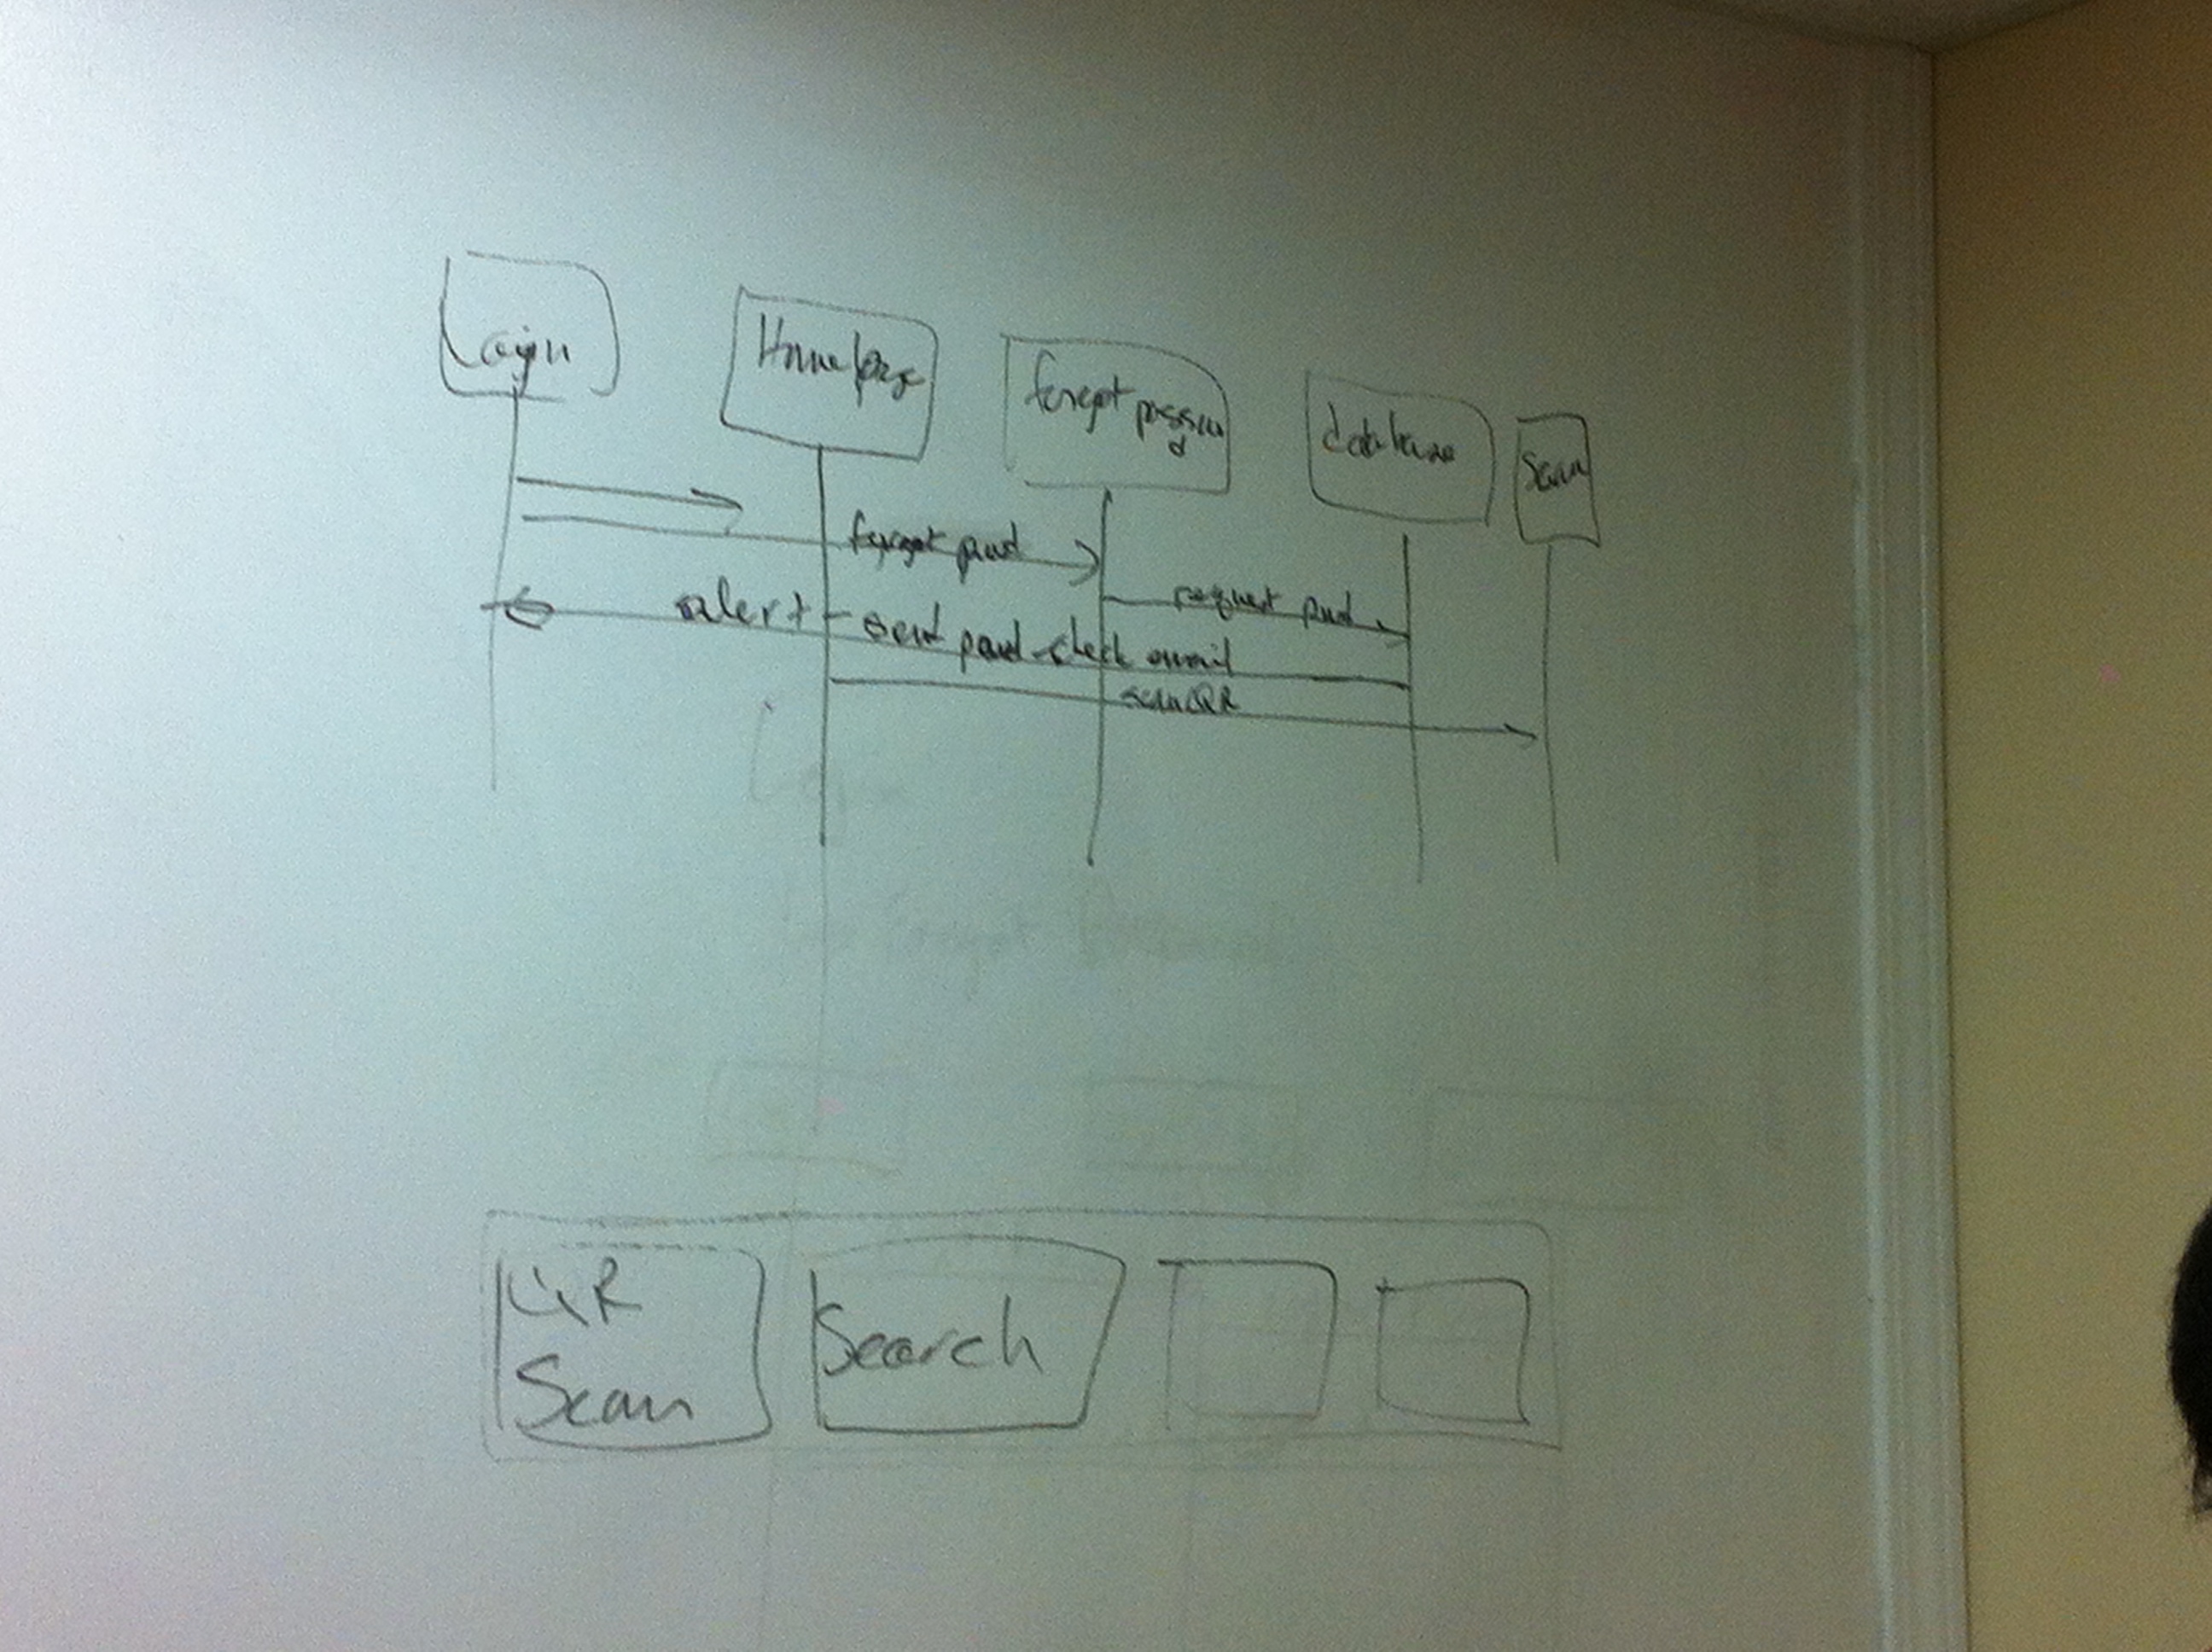 Login
Home Page
forgot passwd
database
Scan
forgot pwd
request pwd
alert - send pswd - check email
scan QR
QR
Scan
Search